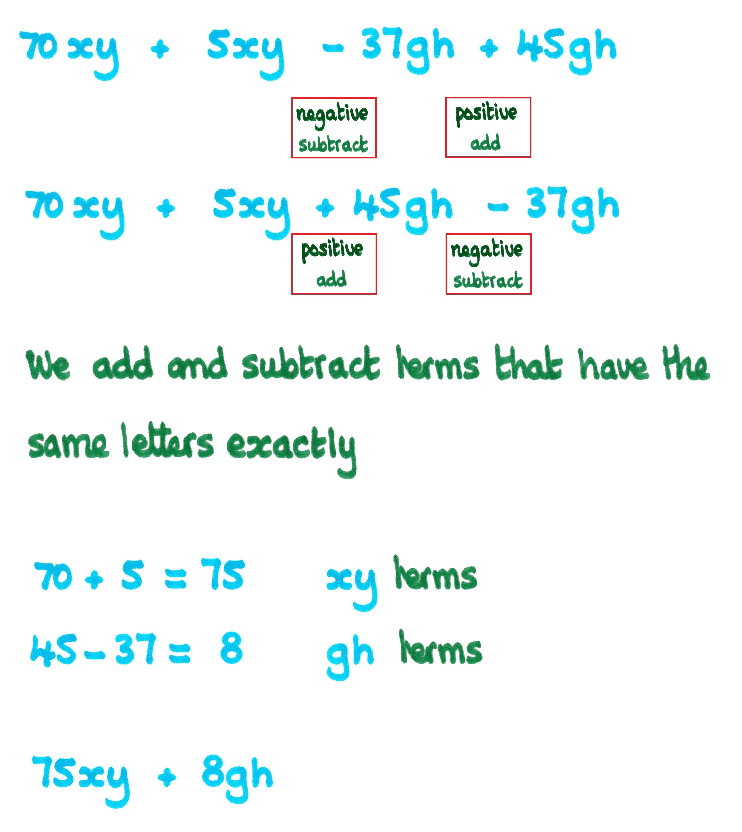 70xy + 5xy - 37gh + 45gh
negative positive
subtract add
70xy + 5xy + 45gh - 37gh
positive negative
add subtract
We add and subtract terms that have the
same letters exactly
70 + 5 = 75 xy terms
45 - 37 = 8 gh terms
75xy + 8gh